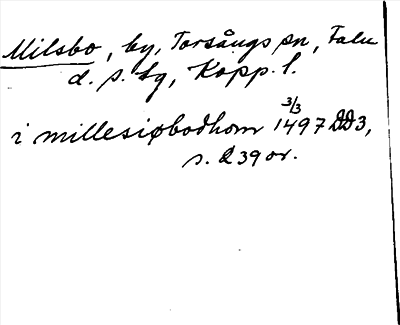 Milsbo, by, Torsångs sn, Falu
d. s. lg, Kopp. l.
3/3
i millesiøbodhom 1497 DD3,
s. 239 or.